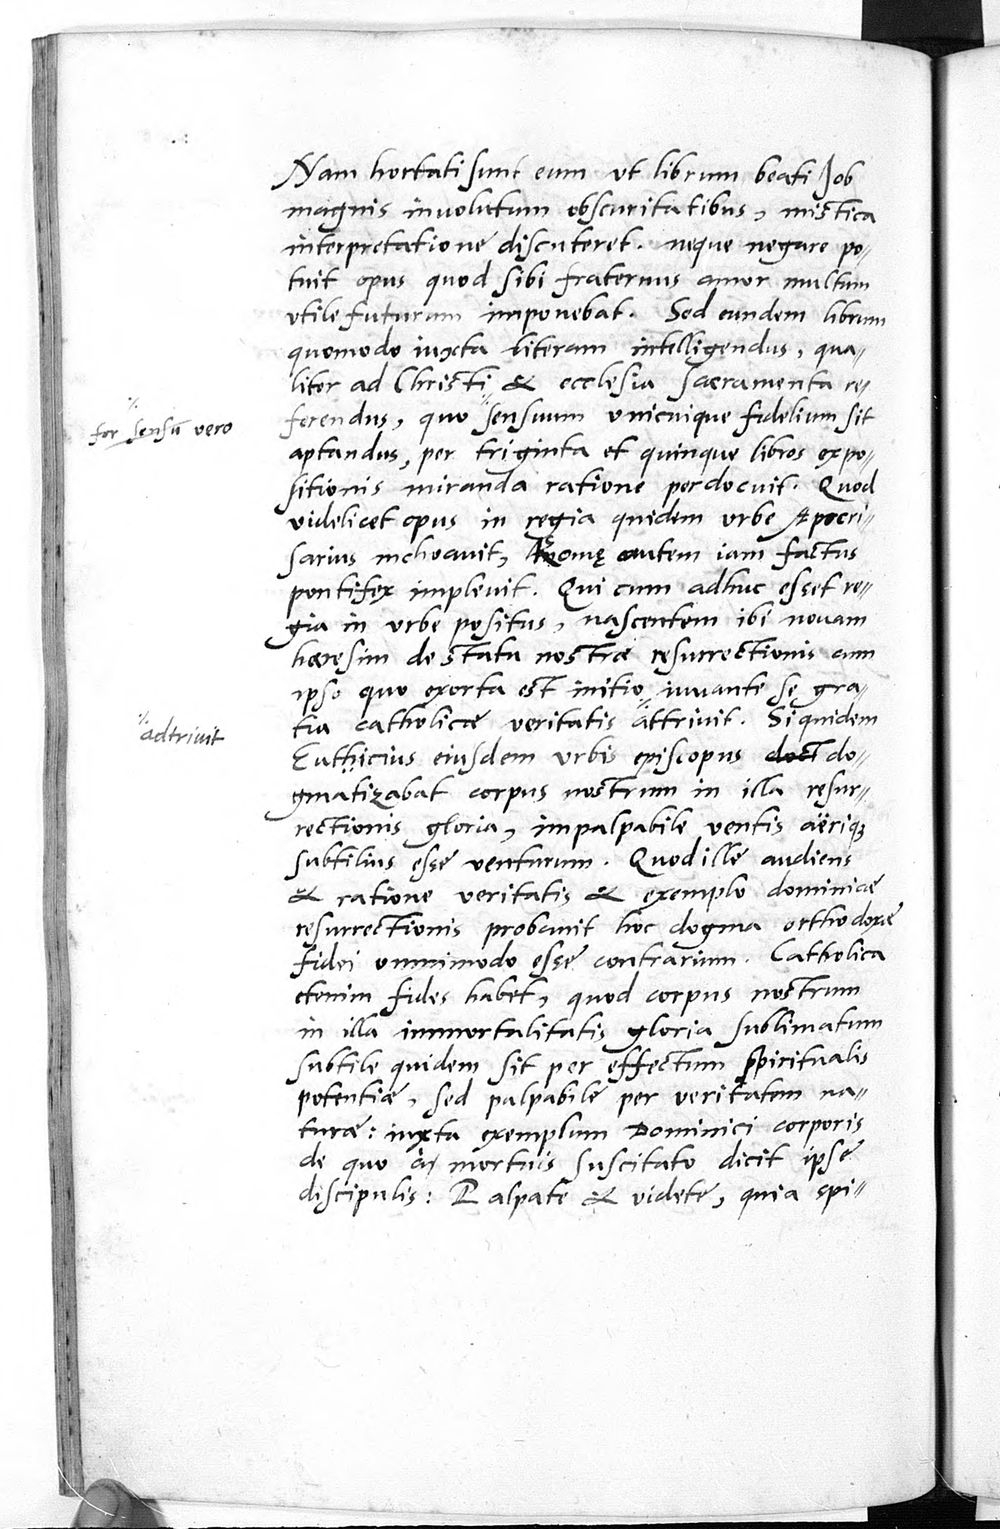 Nam hortati sunt eum vt librum beati Job
magnis inuolutum obscuritatibus, mistica
interpretatione discuteret. neque negare po-
tuit opus quod sibi fraternus amor multum
vtile futurum imponebat. Sed eundem librum
quomodo iuxta literam intelligendus, qua-
liter ad Christi & ecclesia sacramenta re-
ferendus, quo sensuum vnicuique fidelium sit
for sensū vero
aptandus, per triginta et quinque libros expo-
sitionis miranda ratione perdocuit. Quod
videlicet opus in regia quidem vrbe Apocri-
sarius inchoauit, Romę autem iam factus
pontifex impleuit. Qui cum adhuc esset re-
gia in vrbe positus, nascentem ibi nouam
hæresim de statu nostræ resurrectionis cum
ipso quo exorta est initio iuuante se gra-
tia catholicæ veritatis attriuit. Siquidem
adtriuit
Euthicius eiusdem vrbis episcopus doct do-
gmatizabat corpus nostrum in illa resur-
rectionis gloria, impalpabile ventis aërique
subtilius esse venturum. Quod ille audiens
& ratione veritatis & exemplo dominicæ
resurrectionis probauit hoc dogma orthodoxæ
fidei ommimodo esse contrarium. Catholica
etenim fides habet, quod corpus nostrum
in illa immortalitatis gloria sublimatum
subtile quidem sit per effectum spiritualis
potentiæ, sed palpabile per veritatem na-
turæ: iuxta exemplum Dominici corporis
de quo à mortuis suscitato dicit ipse
discipulis: Palpate & videte, quia spi-